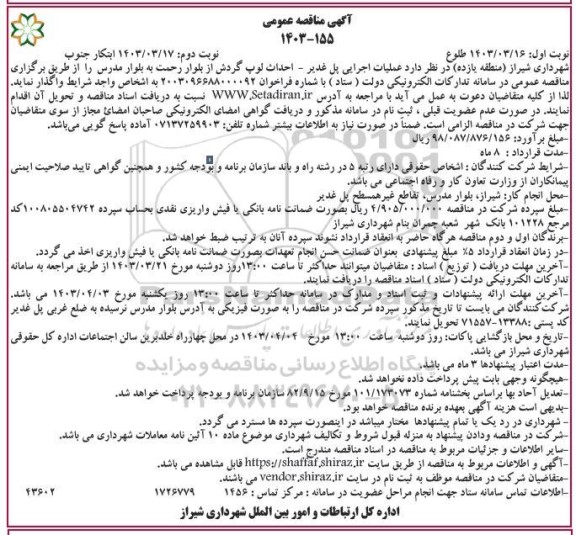 آگهی مناقصه عمومی
۱۴۰۳-۱۵۵
نوبت اول: ۱۴۰۳/۰۳/۱۶ طلوع نوبت دوم: ۱۴۰۳/۰۳/۱۷ ابتکار جنوب
شهرداری شیراز (منطقه یازده) در نظر دارد عملیات اجرایی پل غدیر - احداث لوپ گردش از بلوار رحمت به بلوار مدرس را از طریق برگزاری
مناقصه عمومی در سامانه تدارکات الکترونیکی دولت ( ستاد ) با شماره فراخوان ۲۰۰۳۰۹۶۶۸۸۰۰۰۰۹۲ به اشخاص واجد شرایط واگذار نماید.
لذا از کلیه متقاضیان دعوت به عمل می آید با مراجعه به آدرس WWW.Setadiran.ir نسبت به دریافت اسناد مناقصه و تحویل آن اقدام
نمایند. در صورت عدم عضویت قبلی ، ثبت نام در سامانه مذکور و دریافت گواهی امضای الکترونیکی صاحبان امضائ مجاز از سوی متقاضیان
جهت شرکت در مناقصه الزامی است. ضمناً در صورت نیاز به اطلاعات بیشتر شماره تلفن: ۰۷۱۳۷۲۵۹۹۰۳ آماده پاسخ گویی می‌باشد.
-مبلغ برآورد: ۹۸/۰۸۷/۸۷۶/۱۵۶ ریال
-مدت قرارداد : ۸ ماه
-شرایط شرکت کنندگان : اشخاص حقوقی دارای رتبه ۵ در رشته راه و باند سازمان برنامه و بودجه کشور و همچنین گواهی تایید صلاحیت ایمنی
پیمانکاران از وزارت تعاون کار و رفاه اجتماعی می باشد.
-محل انجام کار: شیراز، بلوار مدرس، تقاطع غیرهمسطح پل غدیر
-مبلغ سپرده شرکت در مناقصه ۴/۹۰۵/۰۰۰/۰۰۰ ریال بصورت ضمانت نامه بانکی یا فیش واریزی نقدی بحساب سپرده ۱۰۰۸۰۵۵۰۴۷۴۲کد
مرجع ۱۰۱۲۲۸ بانک شهر شعبه چمران بنام شهرداری شیراز
-برندگان اول و دوم مناقصه هرگاه حاضر به انعقاد قرارداد نشوند سپرده آنان به ترتیب ضبط خواهد شد.
-در زمان انعقاد قرارداد ۵٪ مبلغ پیشنهادی بعنوان ضمانت حسن انجام تعهدات بصورت ضمانت نامه بانکی یا فیش واریزی اخذ می گردد.
-آخرین مهلت دریافت ( توزیع ) اسناد : متقاضیان میتوانند حداکثر تا ساعت ۱۳:۰۰روز دوشنبه مورخ ۱۴۰۳/۰۳/۲۱ از طریق مراجعه به سامانه
تدارکات الکترونیکی دولت ( ستاد ) اسناد مناقصه را دریافت نمایند.
-آخرین مهلت ارائه پیشنهادات و عودت اسناد و مدارک در سامانه حداکثر تا ساعت ۱۳:۰۰ روز یکشنبه مورخ ۱۴۰۳/۰۴/۰۳ می باشد.
شرکت‌کنندگان می بایست تا تاریخ مذکور سپرده شرکت در مناقصه را به صورت فیزیکی به آدرس بلوار مدرس نرسیده به ضلع غربی پل غدیر
کد پستی :۱۳۳۸۸-۷۱۵۵۷ تحویل نمایند.
-تاریخ و محل بازگشایی پاکات: روز دوشنبه ساعت ۱۳:۰۰ مورخ ۱۴۰۳/۰۴/۰۴ در محل چهارراه خلدبرین سالن اجتماعات اداره کل حقوقی
شهرداری شیراز می باشد.
-مدت اعتبار پیشنهادها ۳ ماه می باشد.
-هیچگونه وجهی بابت پیش پرداخت داده نخواهد شد.
-تعدیل آحاد بها براساس بخشنامه شماره ۱۰۱/۱۷۳۰۷۳ مورخ ۸۲/۹/۱۵ سازمان برنامه و بودجه پرداخت خواهد شد.
-بدیهی است هزینه آگهی بعهده برنده مناقصه خواهد بود.
- شهرداری در رد یک یا تمام پیشنهادها مختار میباشد در اینصورت سپرده ها مسترد می گردد.
-شرکت در مناقصه ودادن پیشنهاد به منزله قبول شروط و تکالیف شهرداری موضوع ماده ۱۰ آئین نامه معاملات شهرداری می باشد.
-سایر اطلاعات و جزئیات مربوط به مناقصه در اسناد مناقصه مندرج است.
-آگهی و اطلاعات مربوط به مناقصه از طریق سایت https://shaffaf.shiraz.ir قابل مشاهده می باشد.
-متقاضیان شرکت در مناقصه موظف به ثبت نام در سایت vendor.shiraz.ir می باشند.
-اطلاعات تماس سامانه ستاد جهت انجام مراحل عضویت در سامانه : مرکز تماس : ۱۴۵۶ ۱۷۲۶۷۷۹ ۴۳۶۰۲
اداره کل ارتباطات و امور بین الملل شهرداری شیراز